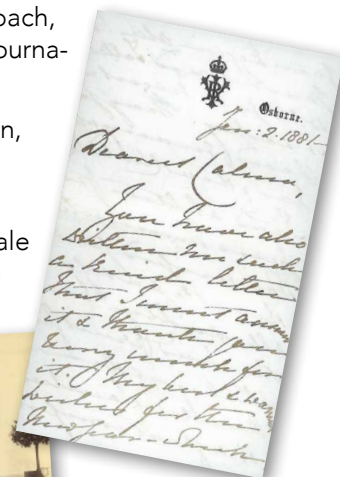 oach,
ourna-
n,
ale
Osborne.
Jan: 2. 1881
Dearest
You have also
written me such
a kind letter
that I must answer
it & thank you
very much for
it. My best & warmest
wishes for the
New Year – which